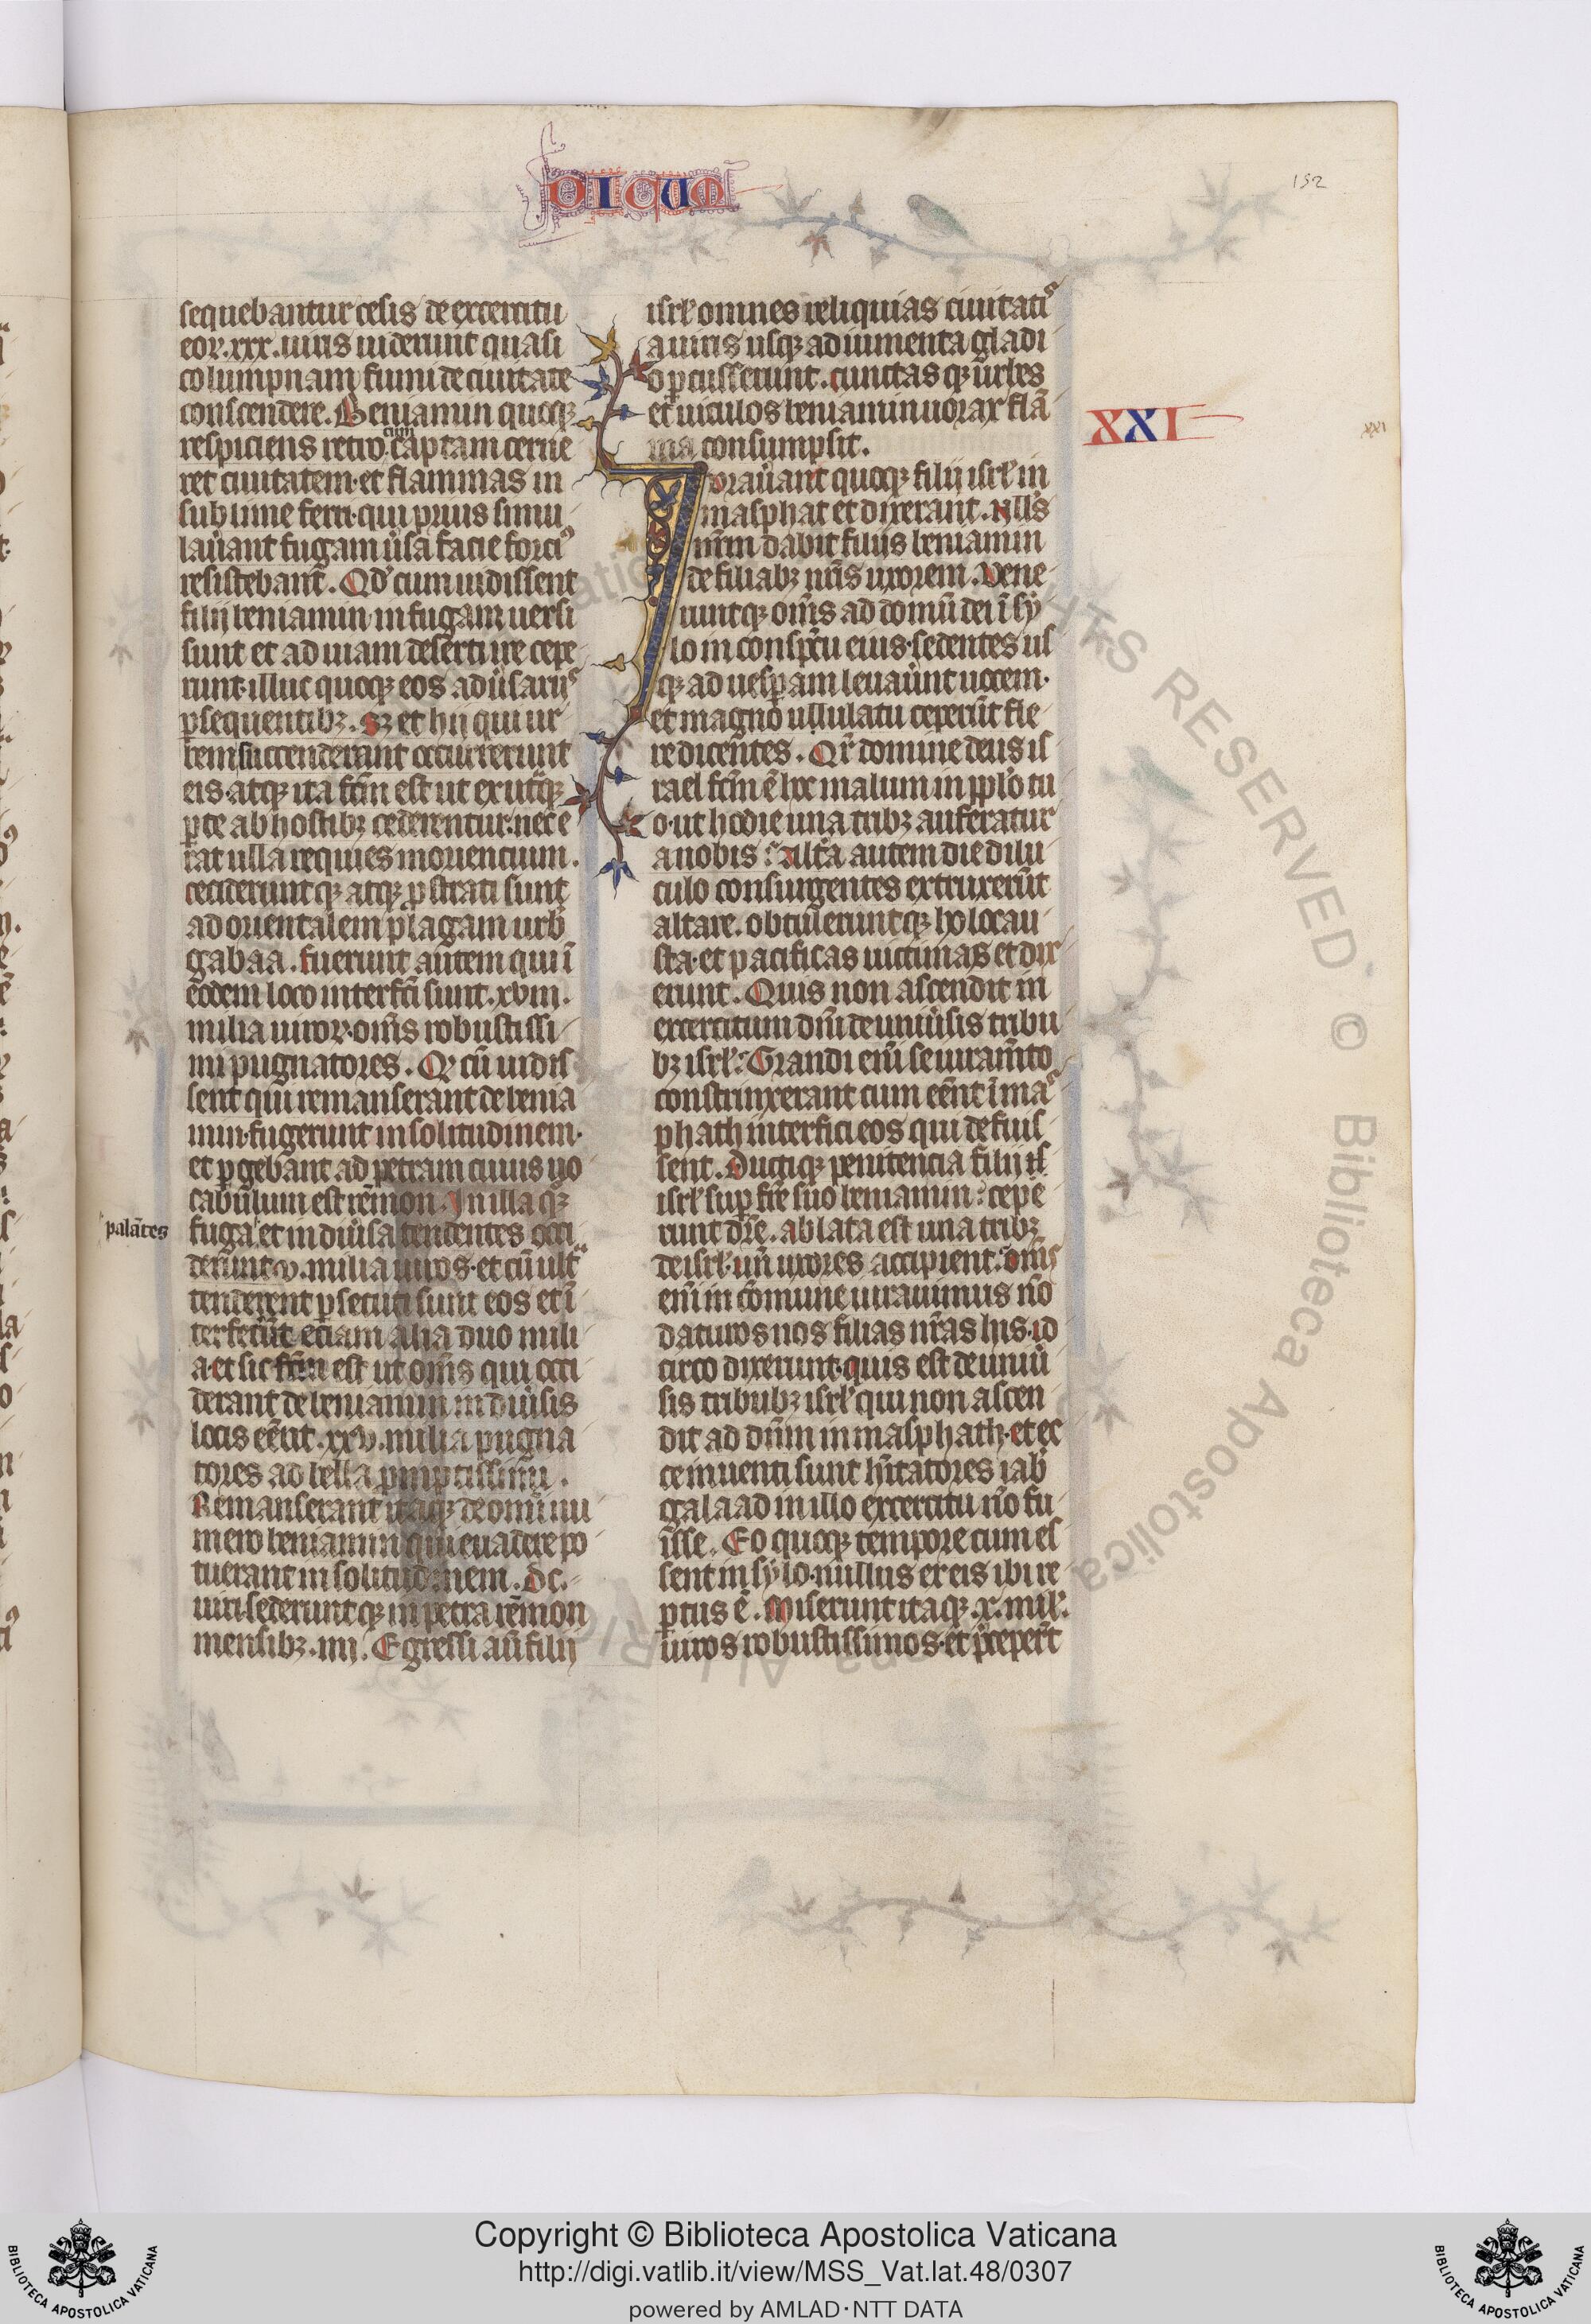 DICUM
192
sequebantur cesis de exercitu
eoꝝ.xxx.uiris uiderunt quasi
columpnam fumi de ciuitate
conscendere. Beniamin quoqꝫ
respiciens retro cum captam cerne
ret ciuitatem et flammas in
sublime ferri qui prius simu
lau̅ant fugam u̅sa facie forciꝰ
resistebant. Qd̓ cum uidissent
filij beniamin in fugam uersi
sunt et ad uiam deserti ire cepe
runt illuc quoqꝫ eos adu̅sarijs
ꝑsequentibꝫ. Sꝫ et hij qui ur
bem succenderant occurrerunt
eis. atqꝫ ita fc̅m est ut ex utͣqꝫ
ꝑte ab hostibꝫ cederentur. nec e
rat ulla requies morientium.
ceciderunt qꝫ atqꝫ ꝓstrati sunt
ad orientalem plagam urb̓
gabaa. fuerunt autem qui i̅
eodem loco interfc̅i sunt. xviii.
milia uiroꝝ om̅s robustissi
mi pugnatores. Qꝫ cu̅ uidis
sent qui remanserant de benia
min fugerunt in solitudinem.
et ꝑgebant ad petram cuius uo
cabulum est remon. In illa qꝫ
fuga et in diu̅sa tendentes occi
palantes
derunt .v. milia uiros. et cu̅ ultͣ
tenderent ꝑsecuti sunt eos et i̅
terfecer̅t eciam alia duo mili
a et sic fc̅m est ut om̅s qui occi
derant de beniamin in diu̅sis
locis ee̅nt .xxv. milia pugna
tores ad bella promptissimi.
Remanserant itaqꝫ de omni nu
mero beniamin qui euadere po
tuerant in solitudinem. Dc.
uiri. sederunt qꝫ in petra remon
mensibꝫ .iiii. Egressi au̅ filij
isrl̓ omnes reliquias ciuitatiꝰ
a uiris usqꝫ ad iumenta gladi
o ꝑcusserunt. cunctas qꝫ urbes
et uiculos beniamin uorax fla̅
ma consumpsit.
XXI
xxi
Iurau̅ant quoqꝫ filij isrl̓ in
masphat et dixerant. Nll̓s
nr̅m dabit filijs beniamin
de filiabꝫ nr̅is uxorem. Vene
runt qꝫ om̅s ad domu̅ dei i̅ sy
lo in conspc̅u eius sedentes us
qꝫ ad uesꝑam leuau̅unt uocem.
et magno ullulatu ceperu̅t fle
re dicentes. Qr̅ domine deus is
rael fc̅m e̅ hoc malum in ppl̓o tu
o. ut hodie una tribꝫ auferatur
a nobis. Altͣa autem die dilu
culo consurgentes extruxeru̅t
altare. obtulerunt qꝫ holocau
sta et pacificas uictimas et dix
erunt. Quis non ascendit in
exercitum dn̅i de uniu̅sis tribu
bꝫ isrl̓. Grandi eni̅ se iuram̅to
constrinxerant cum ee̅nt i̅ mas
phath interfici eos qui defuis
sent. Ducti qꝫ penitencia filij isl̓
isrl̓ suꝑ fr̅e suo beniamin. cepe
runt dic̅e. ablata est una tribꝫ
de isrl̓. un̅ uxores accipient. om̅s
eni̅ in com̅une iurauimus no̅
daturos nos filias nr̅as his. id
circo dixerunt. quis est de uniu̅
sis tribubꝫ isrl̓ qui non ascen
dit ad dn̅m in masphath. et ec
ce inuenti sunt hi̅tatores iab̓
galaad in illo exercitu no̅ fu
isse. Eo quoqꝫ tempore cum es
sent in sylo. nullus ex eis ibi re
ꝑtus e̅. Miserunt itaqꝫ .x. mil̓.
uiros robustissimos. et p̅ceper̅t
Copyright © Biblioteca Apostolica Vaticana
http://digi.vatlib.it/view/MSS_Vat.lat.48/0307
powered by AMLAD·NTT DATA
BIBLIOTECA APOSTOLICA VATICANA
BIBLIOTECA APOSTOLICA VATICANA